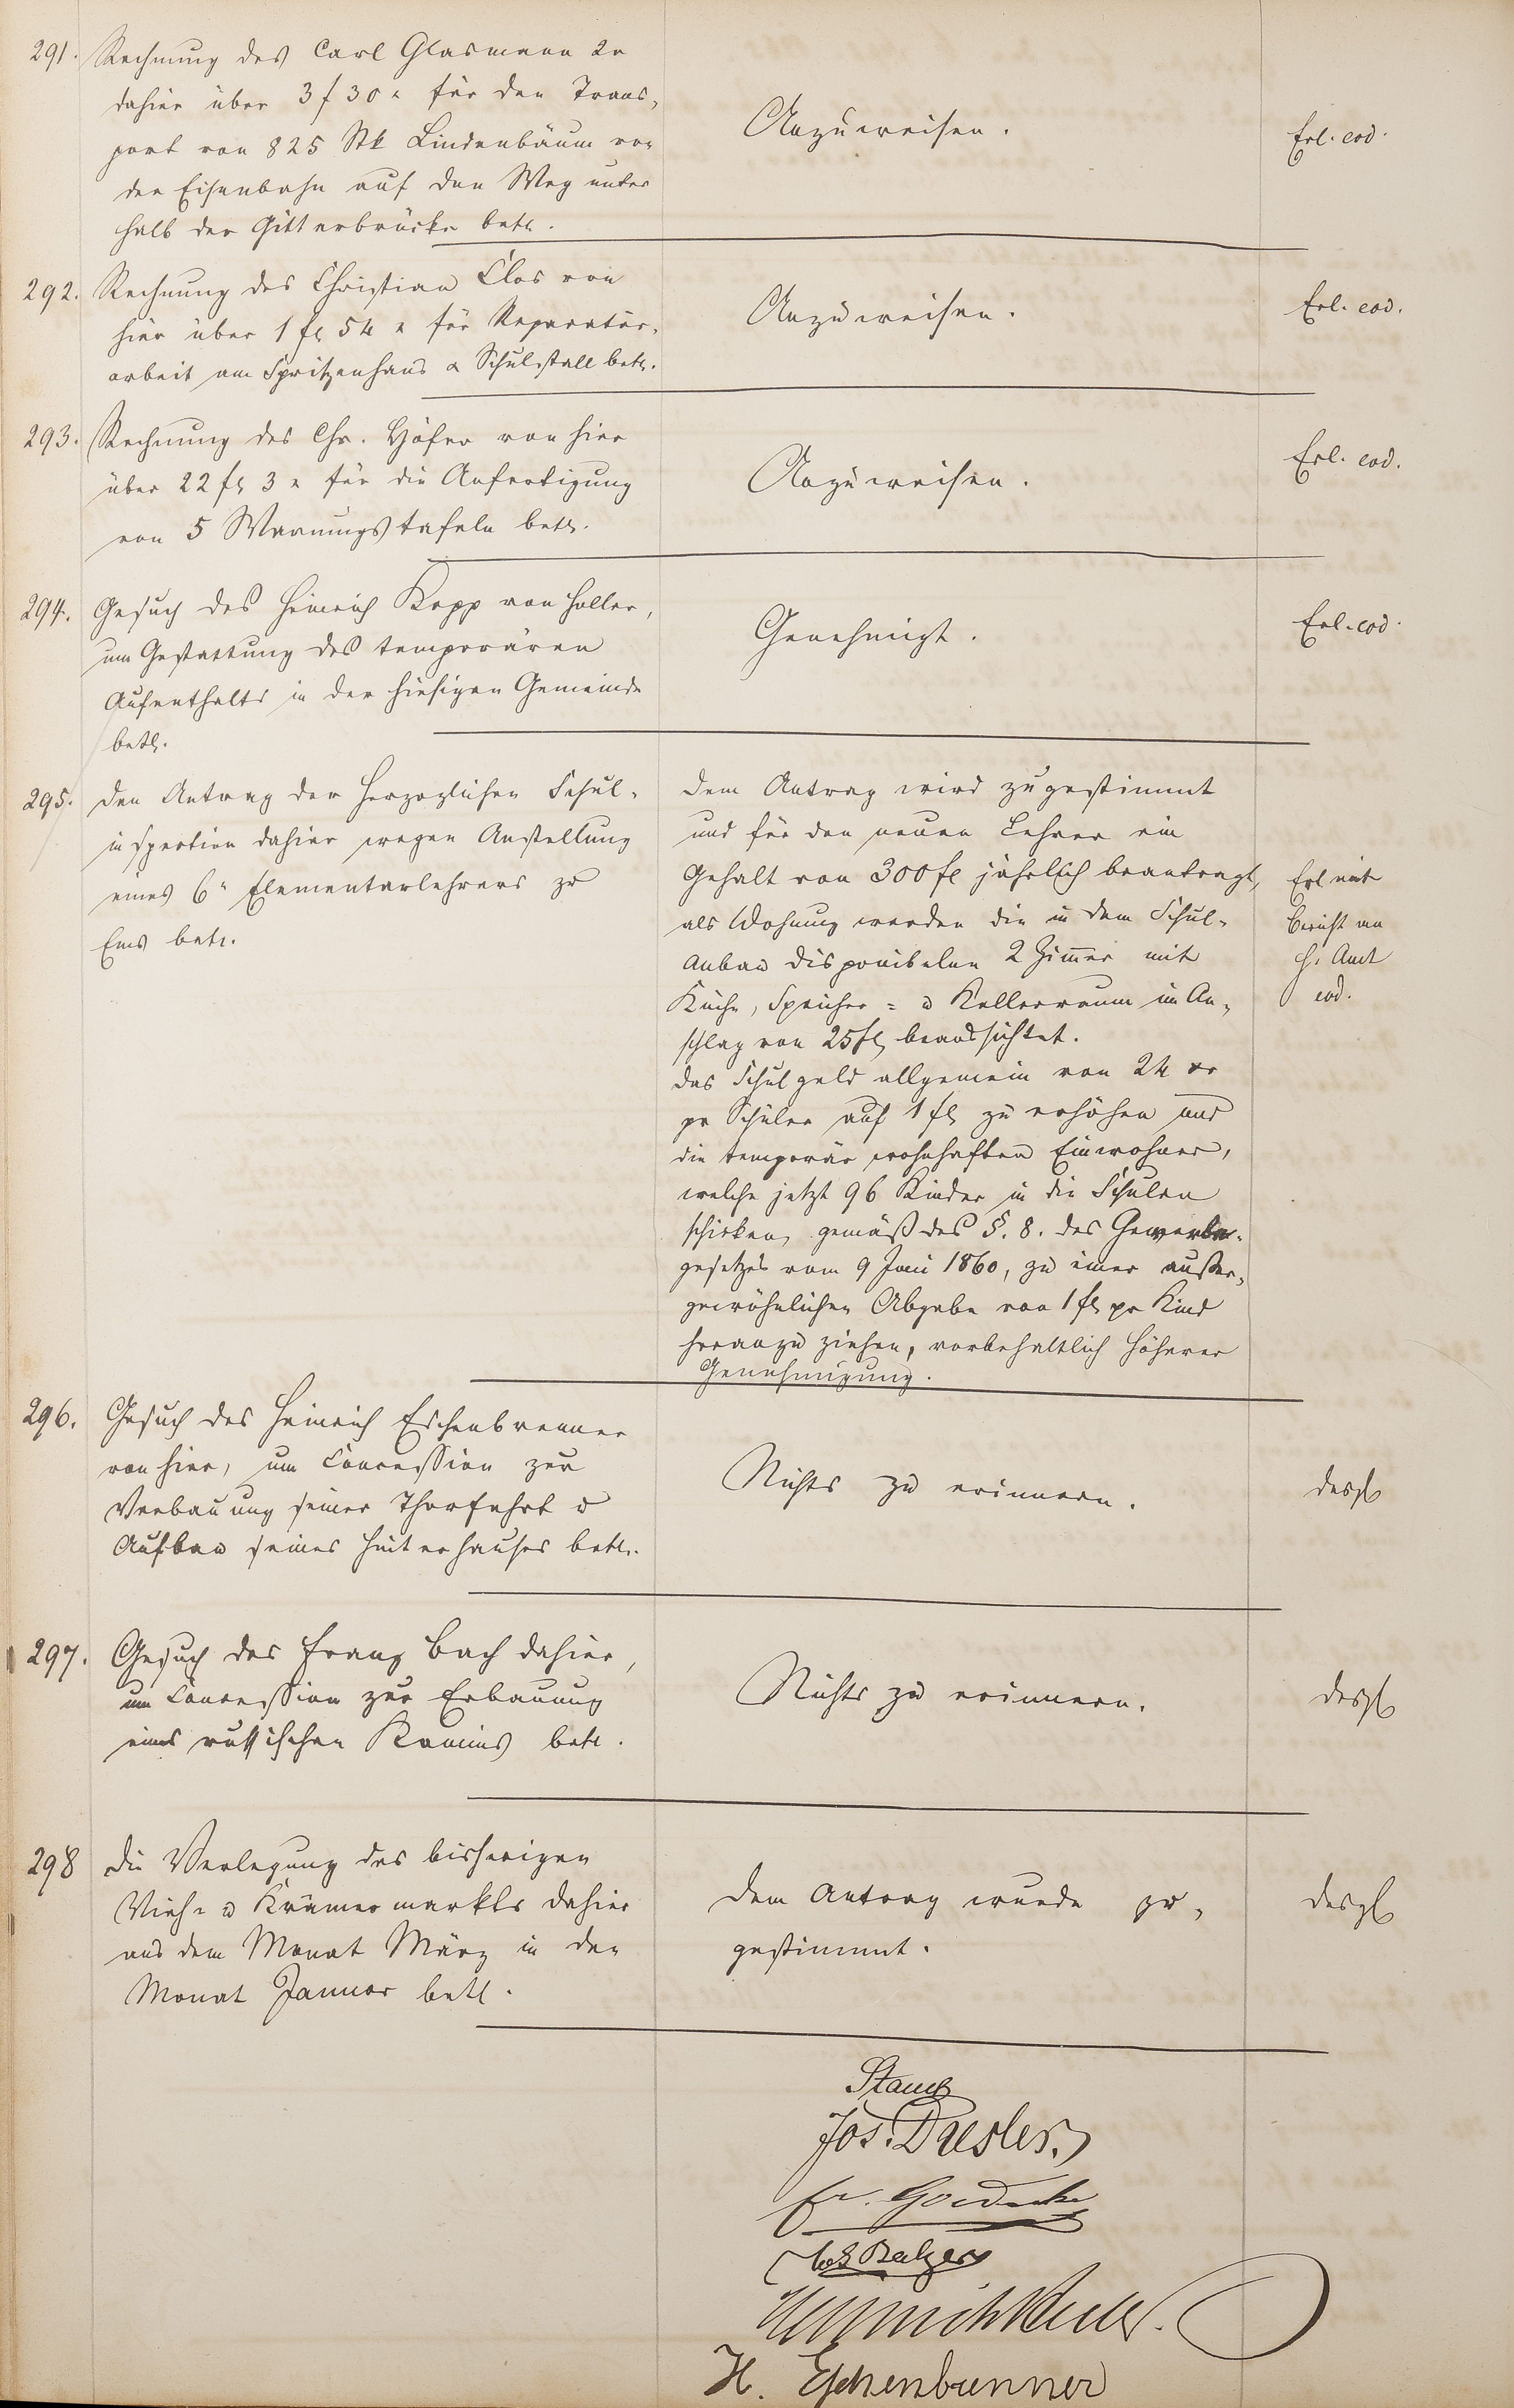 291. Rechnung des Carl Glasmann 2r
dahier über 3 f 30 x für den Trans-
port von 825 Stk Lindenbäum von
der Eisenbahn auf den Weg unter
halb der Gitterbrücke betr.
Anzuweisen.
Erl. eod.
292. Rechnung des Christian Clos von
hier über 1 fl 54 x für Reparatur-
arbeit am Spritzenhaus & Schulstall betr.
Anzuweisen.
Erl. eod.
293. Rechnung des Chr. Höfer von hier
über 22 fl 3 x für die Anfertigung
von 5 Warnungstafeln betr.
Anzuweisen.
Erl. eod.
294. Gesuch des Heinrich Kopp von Holler,
um Gestattung des temporären
Aufenthalts in der hiesigen Gemeinde
betr.
Genehmigt.
Erl. eod.
295. Den Antrag der Herzoglichen Schul-
inspection dahier wegen Anstellung
eines 6n Elementarlehrers zu
Ems betr.
Dem Antrag wird zugestimmt
und für den neuen Lehrer ein
Gehalt von 300 fl jährlich beantragt,
als Wohnung werden die in dem Schul-
Anbau disponibelen 2 Zimmer mit
Küche, Speicher- u Kellerraum im An-
schlag von 25 fl beabsichtet.
Das Schulgeld allgemein von 24 xr
pr Schüler auf 1 fl zu erhöhen und
die temporär wohnhaften Einwohner,
welche jetzt 96 Kinder in die Schulen
schicken, gemäß des §. 8. des Gewerbe-
gesetzes vom 9 Juni 1860, zu einer außer-
gewöhnlichen Abgabe von 1 fl pr Kind
heranzu ziehen, vorbehaltlich höherer
Genehmigung.
Erl. mit
Bericht an
H. Amt
eod.
296. Gesuch des Heinrich Eschenbrenner
von hier, um Concession zur
Verbauung seiner Thorfahrt u
Aufbau seines Hinterhauses betr.
Nichts zu erinnern.
desgl
297. Gesuch des Franz Bach dahier,
um Concession zur Erbauung
eines russischen Kamins betr.
Nichts zu erinnern.
desgl
298 Die Verlegung des bisherigen
Vieh- u Krämermarkts dahier
aus dem Monat März in den
Monat Januar betr.
Dem Antrag wurde zu-
gestimmt.
desgl
Jos. Dresler.
Fr. Goedecke
Balzer
H. Eschenbrenner